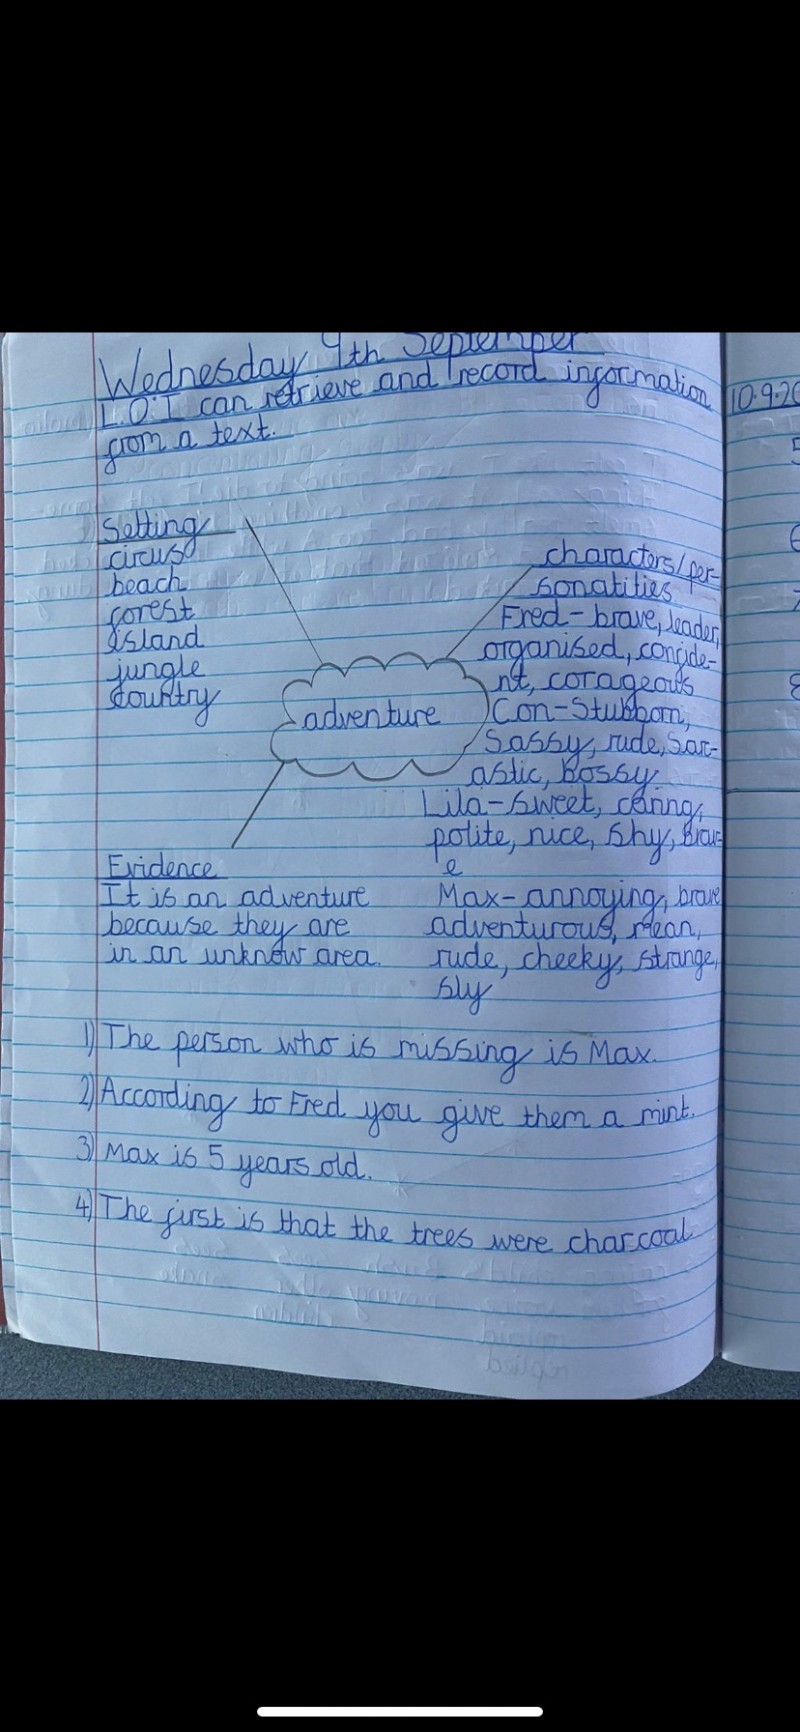 Wednesday 9th September
L.O: I can retrieve and record information
from a text.
Setting
circus
beach
forest
island
jungle
country
characters/per-
sonatities
Fred - brave, leader,
organised, confide-
nt, corageous
Con - Stubborn,
Sassy, rude, Sar-
astic, bossy
Lila - sweet, caring,
polite, nice, shy, brav-
e
Max - annoying, brave
adventurous, mean,
rude, cheeky, strange,
sly
adventure
Evidence
It is an adventure
because they are
in an unknow area.
1) The person who is missing is Max.
2) According to Fred you give them a mint.
3) Max is 5 years old.
4) The first is that the trees were charcoal
10.9.20
5
6
7
8